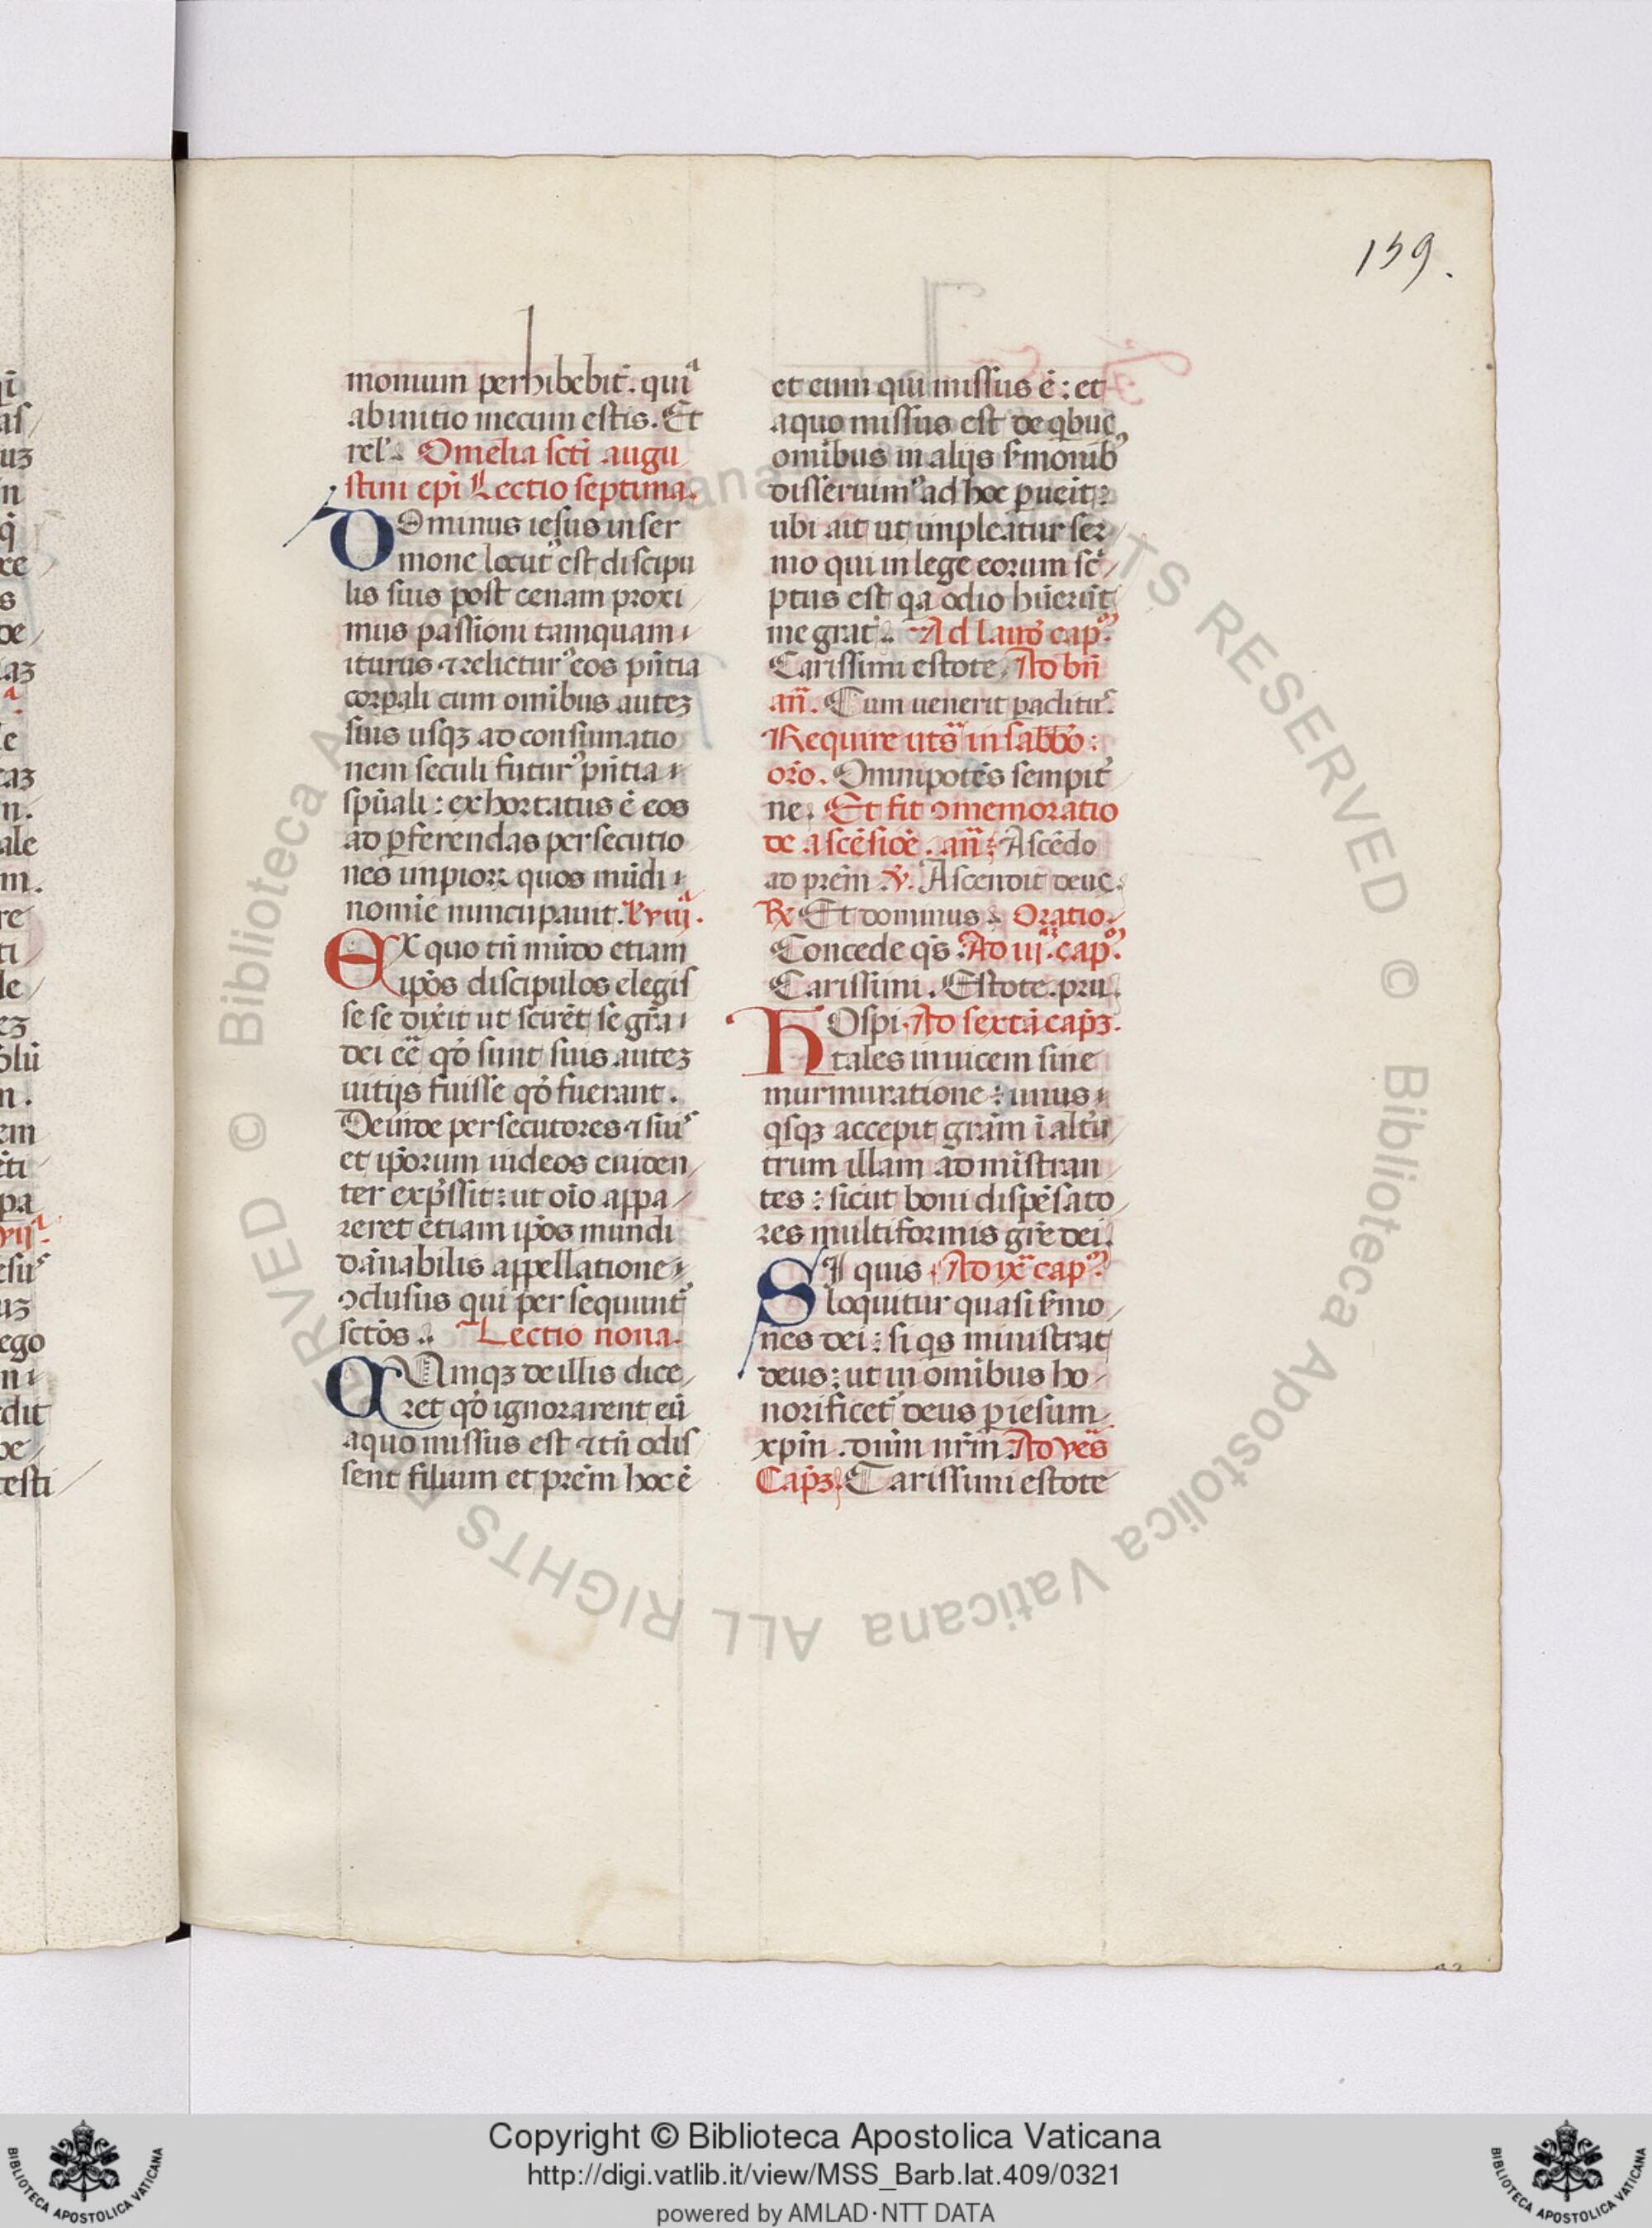 159.
monium perhibebit̃. quiᵃ
ab initio mecum estis. Et
rel̃. Omelia sc̃ti augu
stini ep̃i Lectio septima.
DOminus iesus in ser
mone locut᾽ est discipu
lis suis post cenam proxi
mus passioni tamquam
iturus ⁊ relictur᾽ eos p̃ntia
corꝑali cum omibus autez
suis usqꝫ ad consumatio
nem seculi futur᾽ p̃ntia
sp̃uali: exhortatus ē eos
ad ꝑferendas persecutio
nes impioꝝ quos mūdi
nomīe nuncupauit. L᾽ viijᵃ.
EX quo tñ mūdo etiam
ip̃os discipulos elegis
se se dix̃it ut scirēt se gr̃a
dei eē̃ qd̓ sunt suis autez
uitijs fuisse qd̓ fuerant.
Deinde persecutores ⁊ suᵒˢ
et ip̃orum iudeos euiden
ter exp̃ssit: ut oīo appa
reret etiam ip̃os mundi
dānabilis appellatione
ↄclusus qui persequunt̃
sc̃tōs.. Lectio nona.
QUmqꝫ de illis dice
ret qd̓ ignorarent eū
a quo missus est ⁊ tñ odis
sent filium et prēm hoc ē
et eum qui missus ē: et
a quo missus est de qbus
omībus in alijs ẜmonib᾽
disseruim᾽ ad hoc ꝑueit:
ubi ait ut impleatur ser
mo qui in lege eorum sc̃
ptus est qa odio hũerūt
me grat̃.. Ad lauđ capᵐ.
Carissimi estote. Ad bñ
an̄. Cum uenerit ꝑaclitu᾽.
Require ut sᵃ in sabb̄o:
or̃o. Omnipotēs sempit̃
ne. Et fit ↄmemoratio
de ascēsiōe. an̄: Ascēdo
ad prēm ℣. Ascendit deus.
℞ Et dominus. Oratio.
Concede q̃s. Ad iijᵃᵐ. capᵐ.
Carissimi. Estote. pru.
HOspi. Ad sextā cap̃ꝫ.
tales inuicem sine
murmuratione: unus
qsqꝫ accepit gr̄am ī altū
trum illam admīstran
tes: sicut boni dispēsato
res multiformis gr̄e dei.
SI quis. Ad ixᵃᵐ capᵐ.
loquitur quasi ẜmo
nes dei: si qs ministrat
deus: ut in omībus ho
norificet̃ deus ꝑ iesum
xp̄m. dn̄m nr̄m Ad vēs
Cap̃ꝫ. Carissimi estote
© Biblioteca Apostolica Vaticana ALL RIGHTS RESERVED © Biblioteca Apostolica Vaticana ALL RIGHTS RESERVED
Copyright © Biblioteca Apostolica Vaticana
http://digi.vatlib.it/view/MSS_Barb.lat.409/0321
powered by AMLAD·NTT DATA
BIBLIOTECA APOSTOLICA VATICANA
BIBLIOTECA APOSTOLICA VATICANA